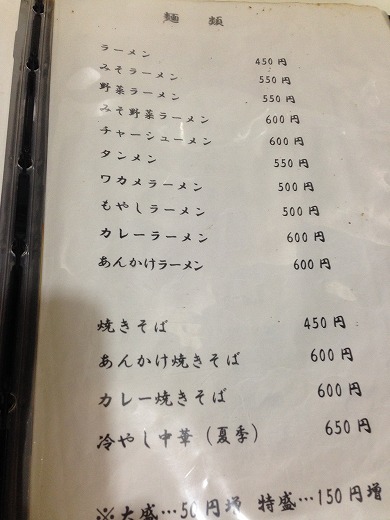 麺類
ラーメン 450円
みそラーメン 550円
野菜ラーメン 550円
みそ野菜ラーメン 600円
チャーシューメン 600円
タンメン 550円
ワカメラーメン 500円
もやしラーメン 500円
カレーラーメン 600円
あんかけラーメン 600円
焼きそば 450円
あんかけ焼きそば 600円
カレー焼きそば 600円
冷やし中華(夏季) 650円
※大盛…50円増 特盛…150円増